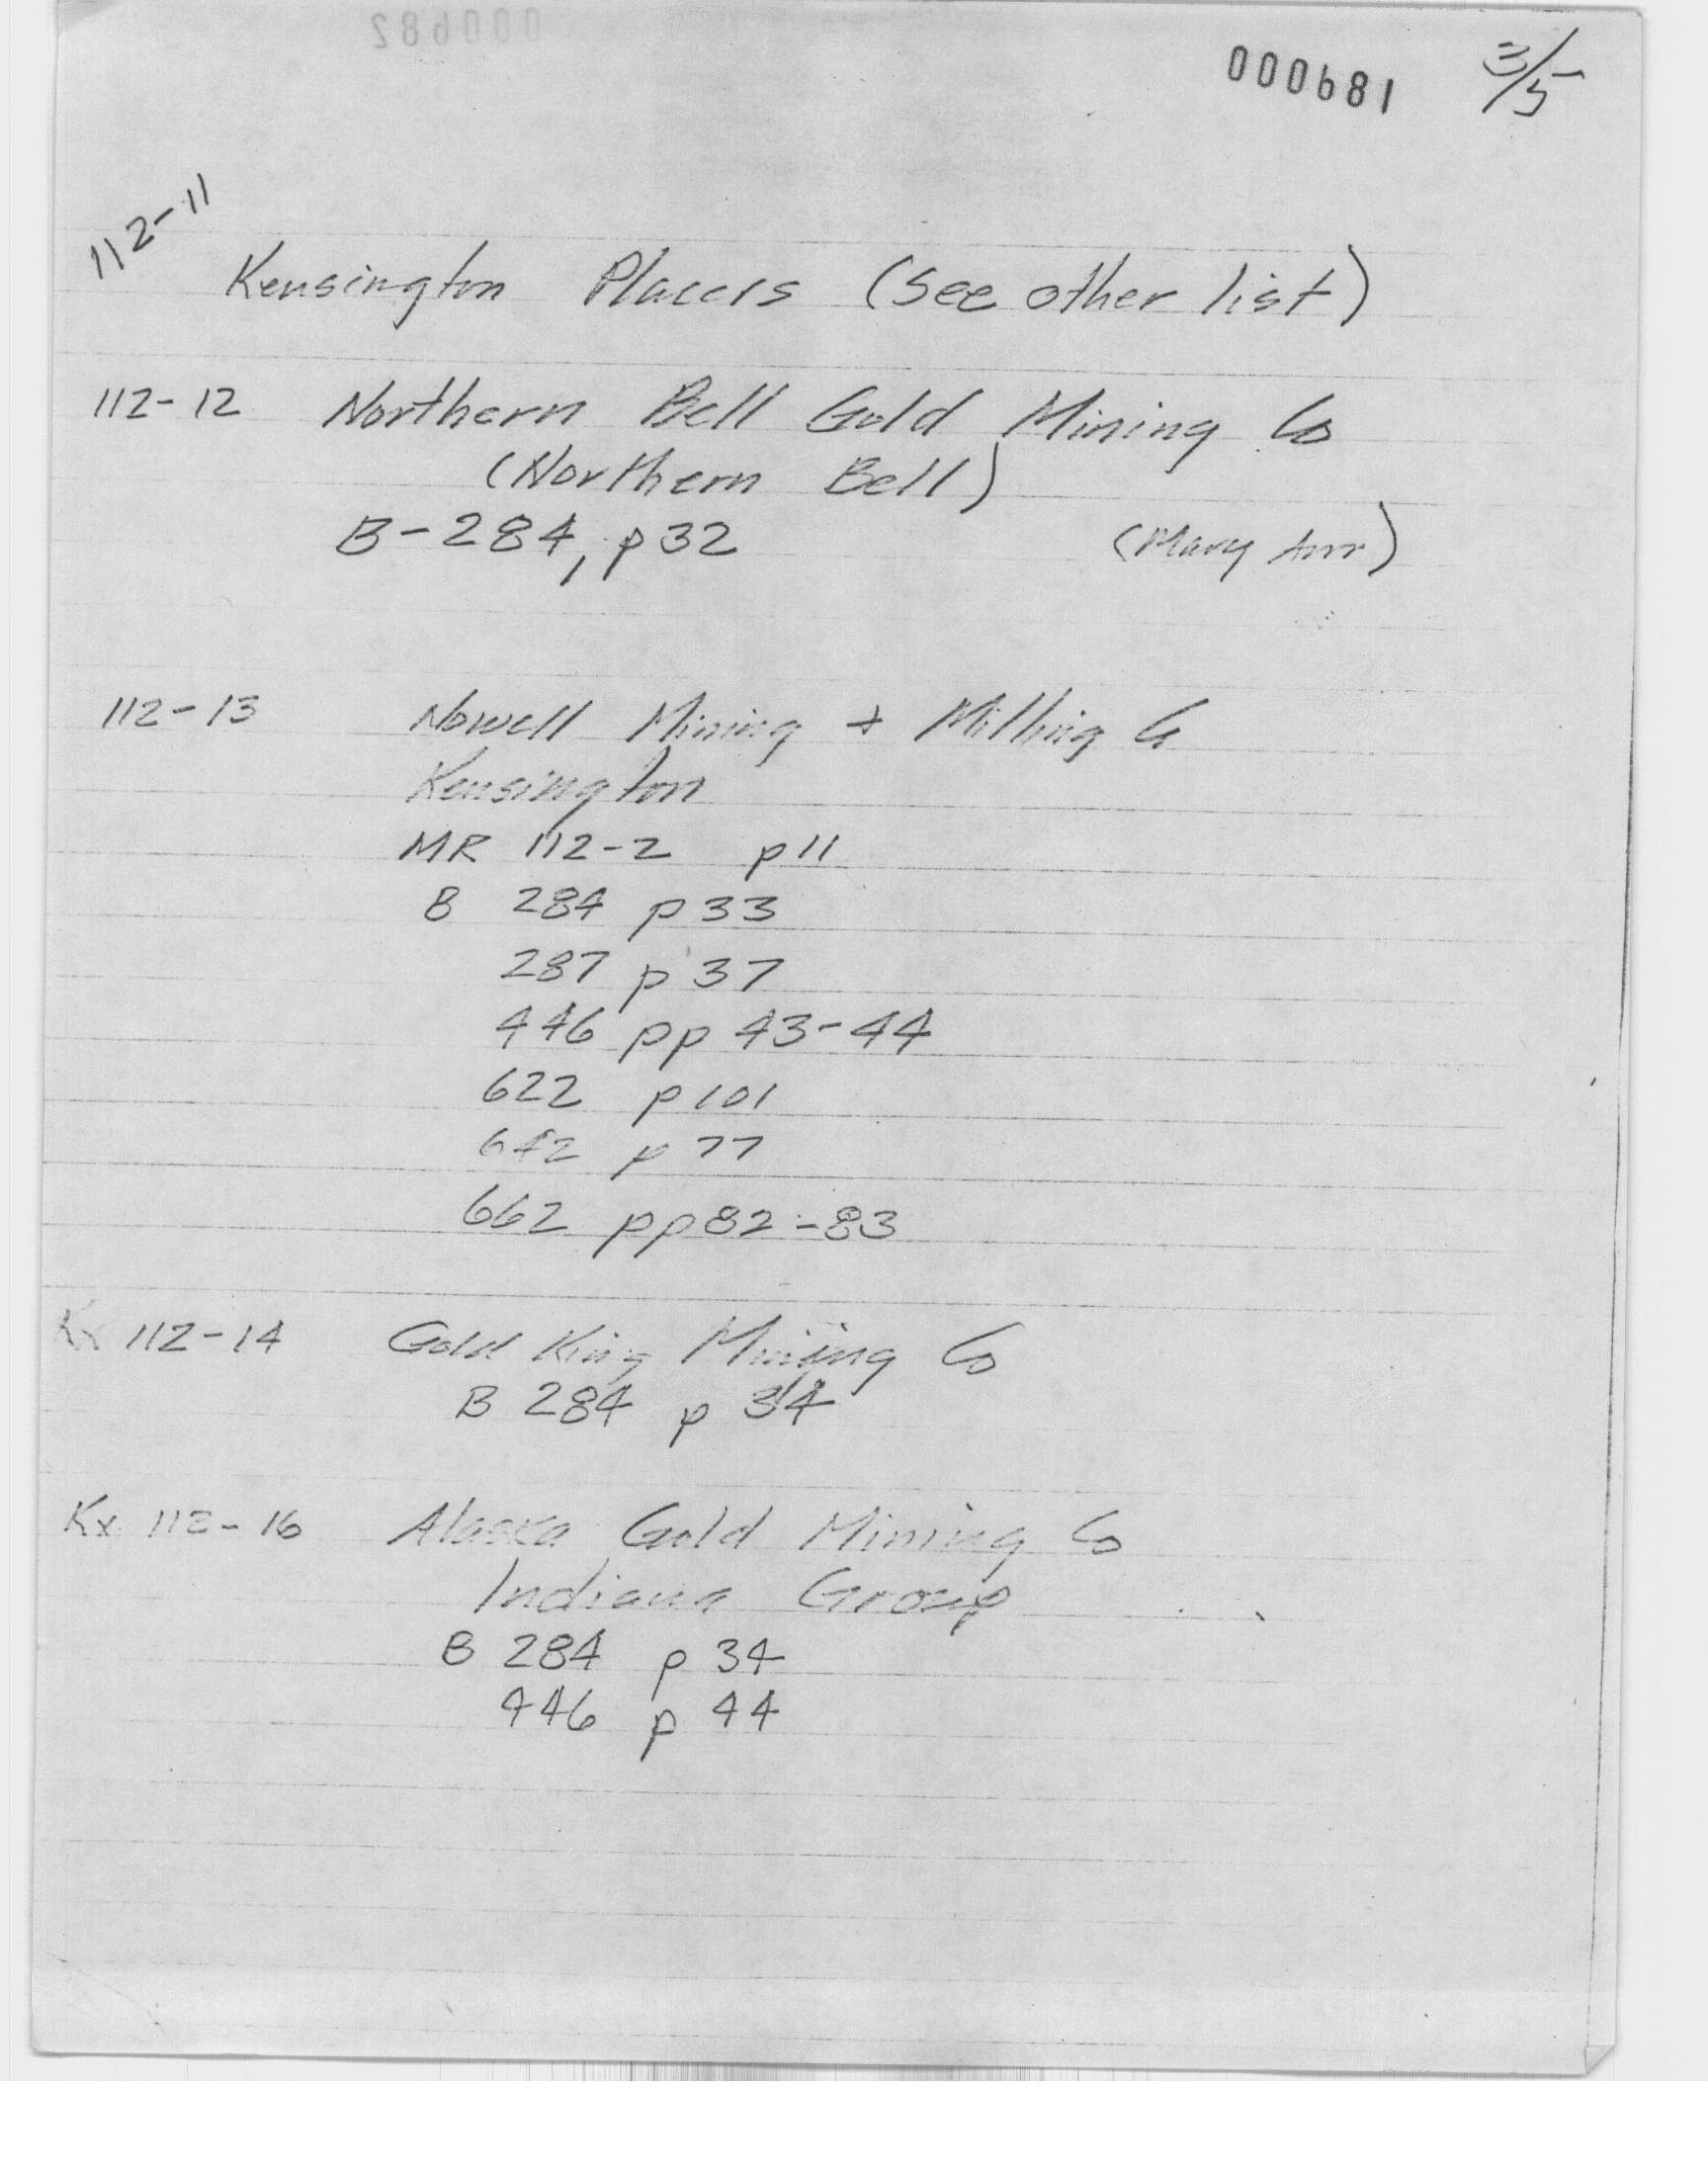 000681 3/5
112-11
Kensington Placers (see other list)
112-12 Northern Bell Gold Mining Co
(Northern Bell)
B-284, p 32 (Mary Ann)
112-13 Nowell Mining + Milling Co
Kensington
MR 112-2 p 11
B 284 p 33
287 p 37
446 pp 43-44
622 p 101
642 p 77
662 pp 82-83
Kx 112-14 Gold King Mining Co
B 284 p 34
Kx 112-16 Alaska Gold Mining Co
Indiana Group
B 284 p 34
446 p 44